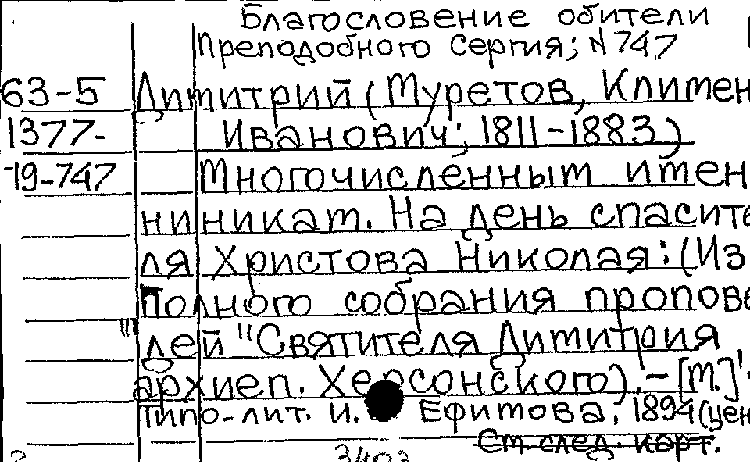 Благословение обители
преподобного Сергия; N747
63-5 Димитрий (Муретов, Климен
1377- Иванович; 1811-1883)
19-747 Многочисленным имен
ниникам. На день спасите
ля Христова Николая: (Из
Полного собрания пропове
дей "Святителя Димитрия
архиеп. Херсонского).-[М.]
типо-лит. И. Ефимова, 1894(цен
См. след. карт.